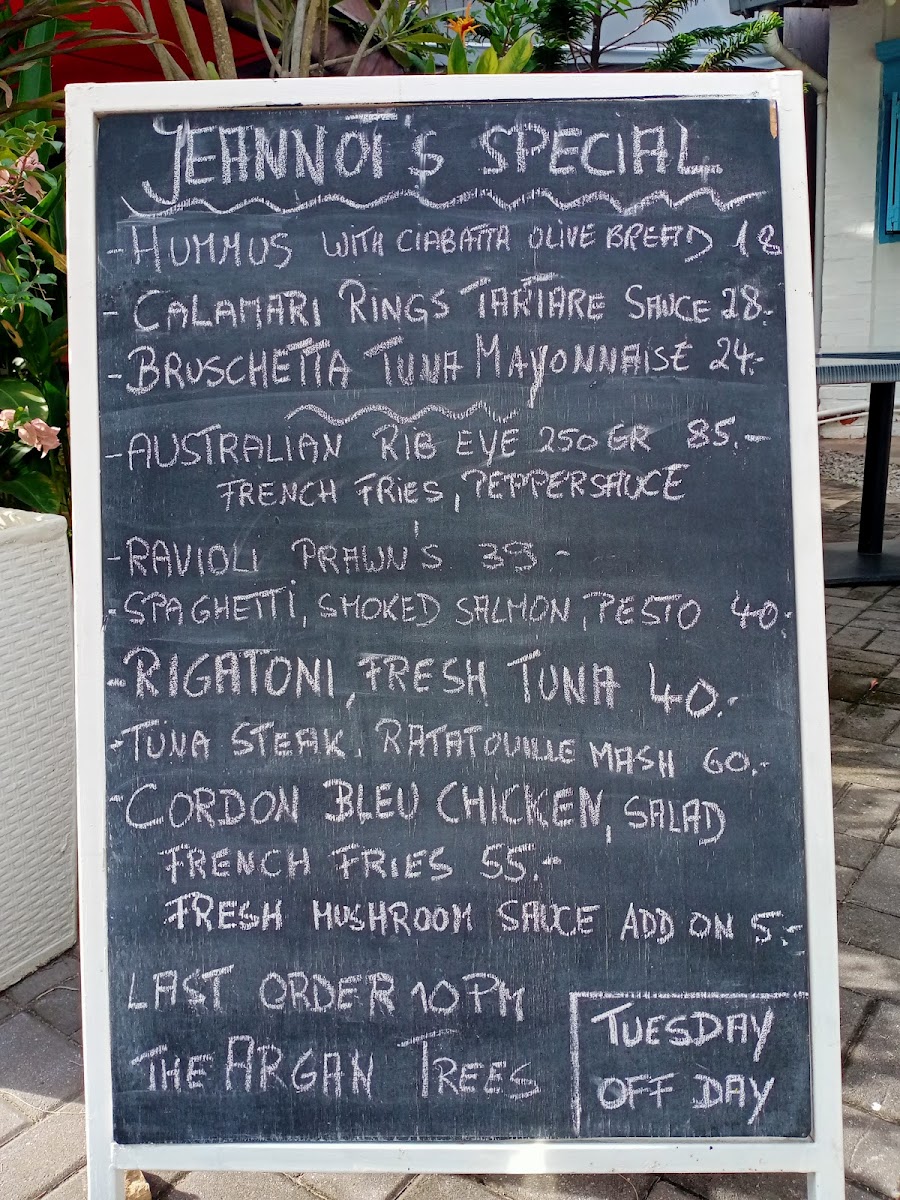 JEANNOT'S SPECIAL
- HUMMUS WITH CIABATTA OLIVE BREAD 18
- CALAMARI RINGS TARTARE SAUCE 28.-
- BRUSCHETTA TUNA MAYONNAISE 24.-
- AUSTRALIAN RIB EYE 250 GR 85.-
FRENCH FRIES, PEPPERSAUCE
- RAVIOLI PRAWN'S 39.-
- SPAGHETTI, SMOKED SALMON, PESTO 40.-
- RIGATONI, FRESH TUNA 40.-
- TUNA STEAK, RATATOUILLE MASH 60.-
- CORDON BLEU CHICKEN, SALAD
FRENCH FRIES 55.-
FRESH MUSHROOM SAUCE ADD ON 5.-
LAST ORDER 10 PM
THE ARGAN TREES
TUESDAY
OFF DAY